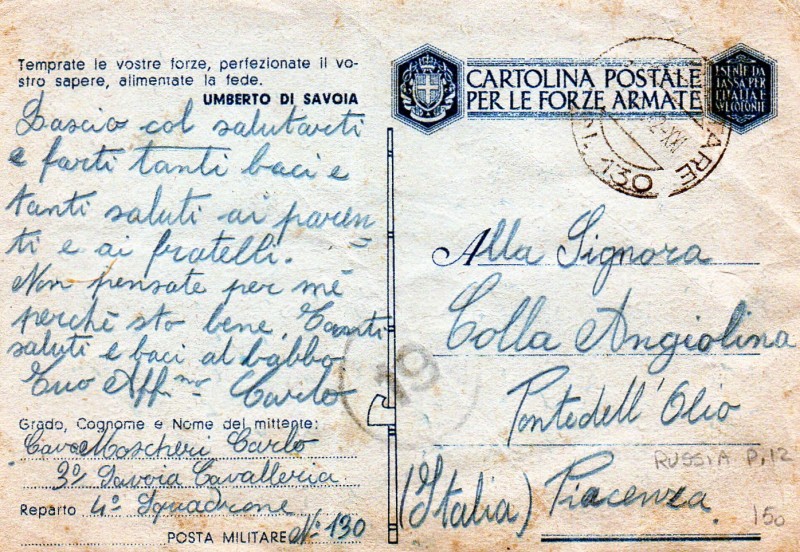 Temprate le vostre forze, perfezionate il vo-
stro sapere, alimentate la fede.
UMBERTO DI SAVOIA
Lascio col salutarti
e farti tanti baci e
tanti saluti ai paren=
ti e ai fratelli.
Non pensate per mé
perchè sto bene. Tanti
saluti e baci al babbo
Tuo Aff.mo Carlo
Grado, Cognome e Nome del mittente:
Cav. Moscheri Carlo
3º Savoia Cavalleria
Reparto 4º Squadrone
POSTA MILITARE Nº 130
CARTOLINA POSTALE
PER LE FORZE ARMATE
130
64
Alla Signora
Colla Angiolina
Pontedell'Olio
RUSSIA P.12
(Italia) Piacenza
150